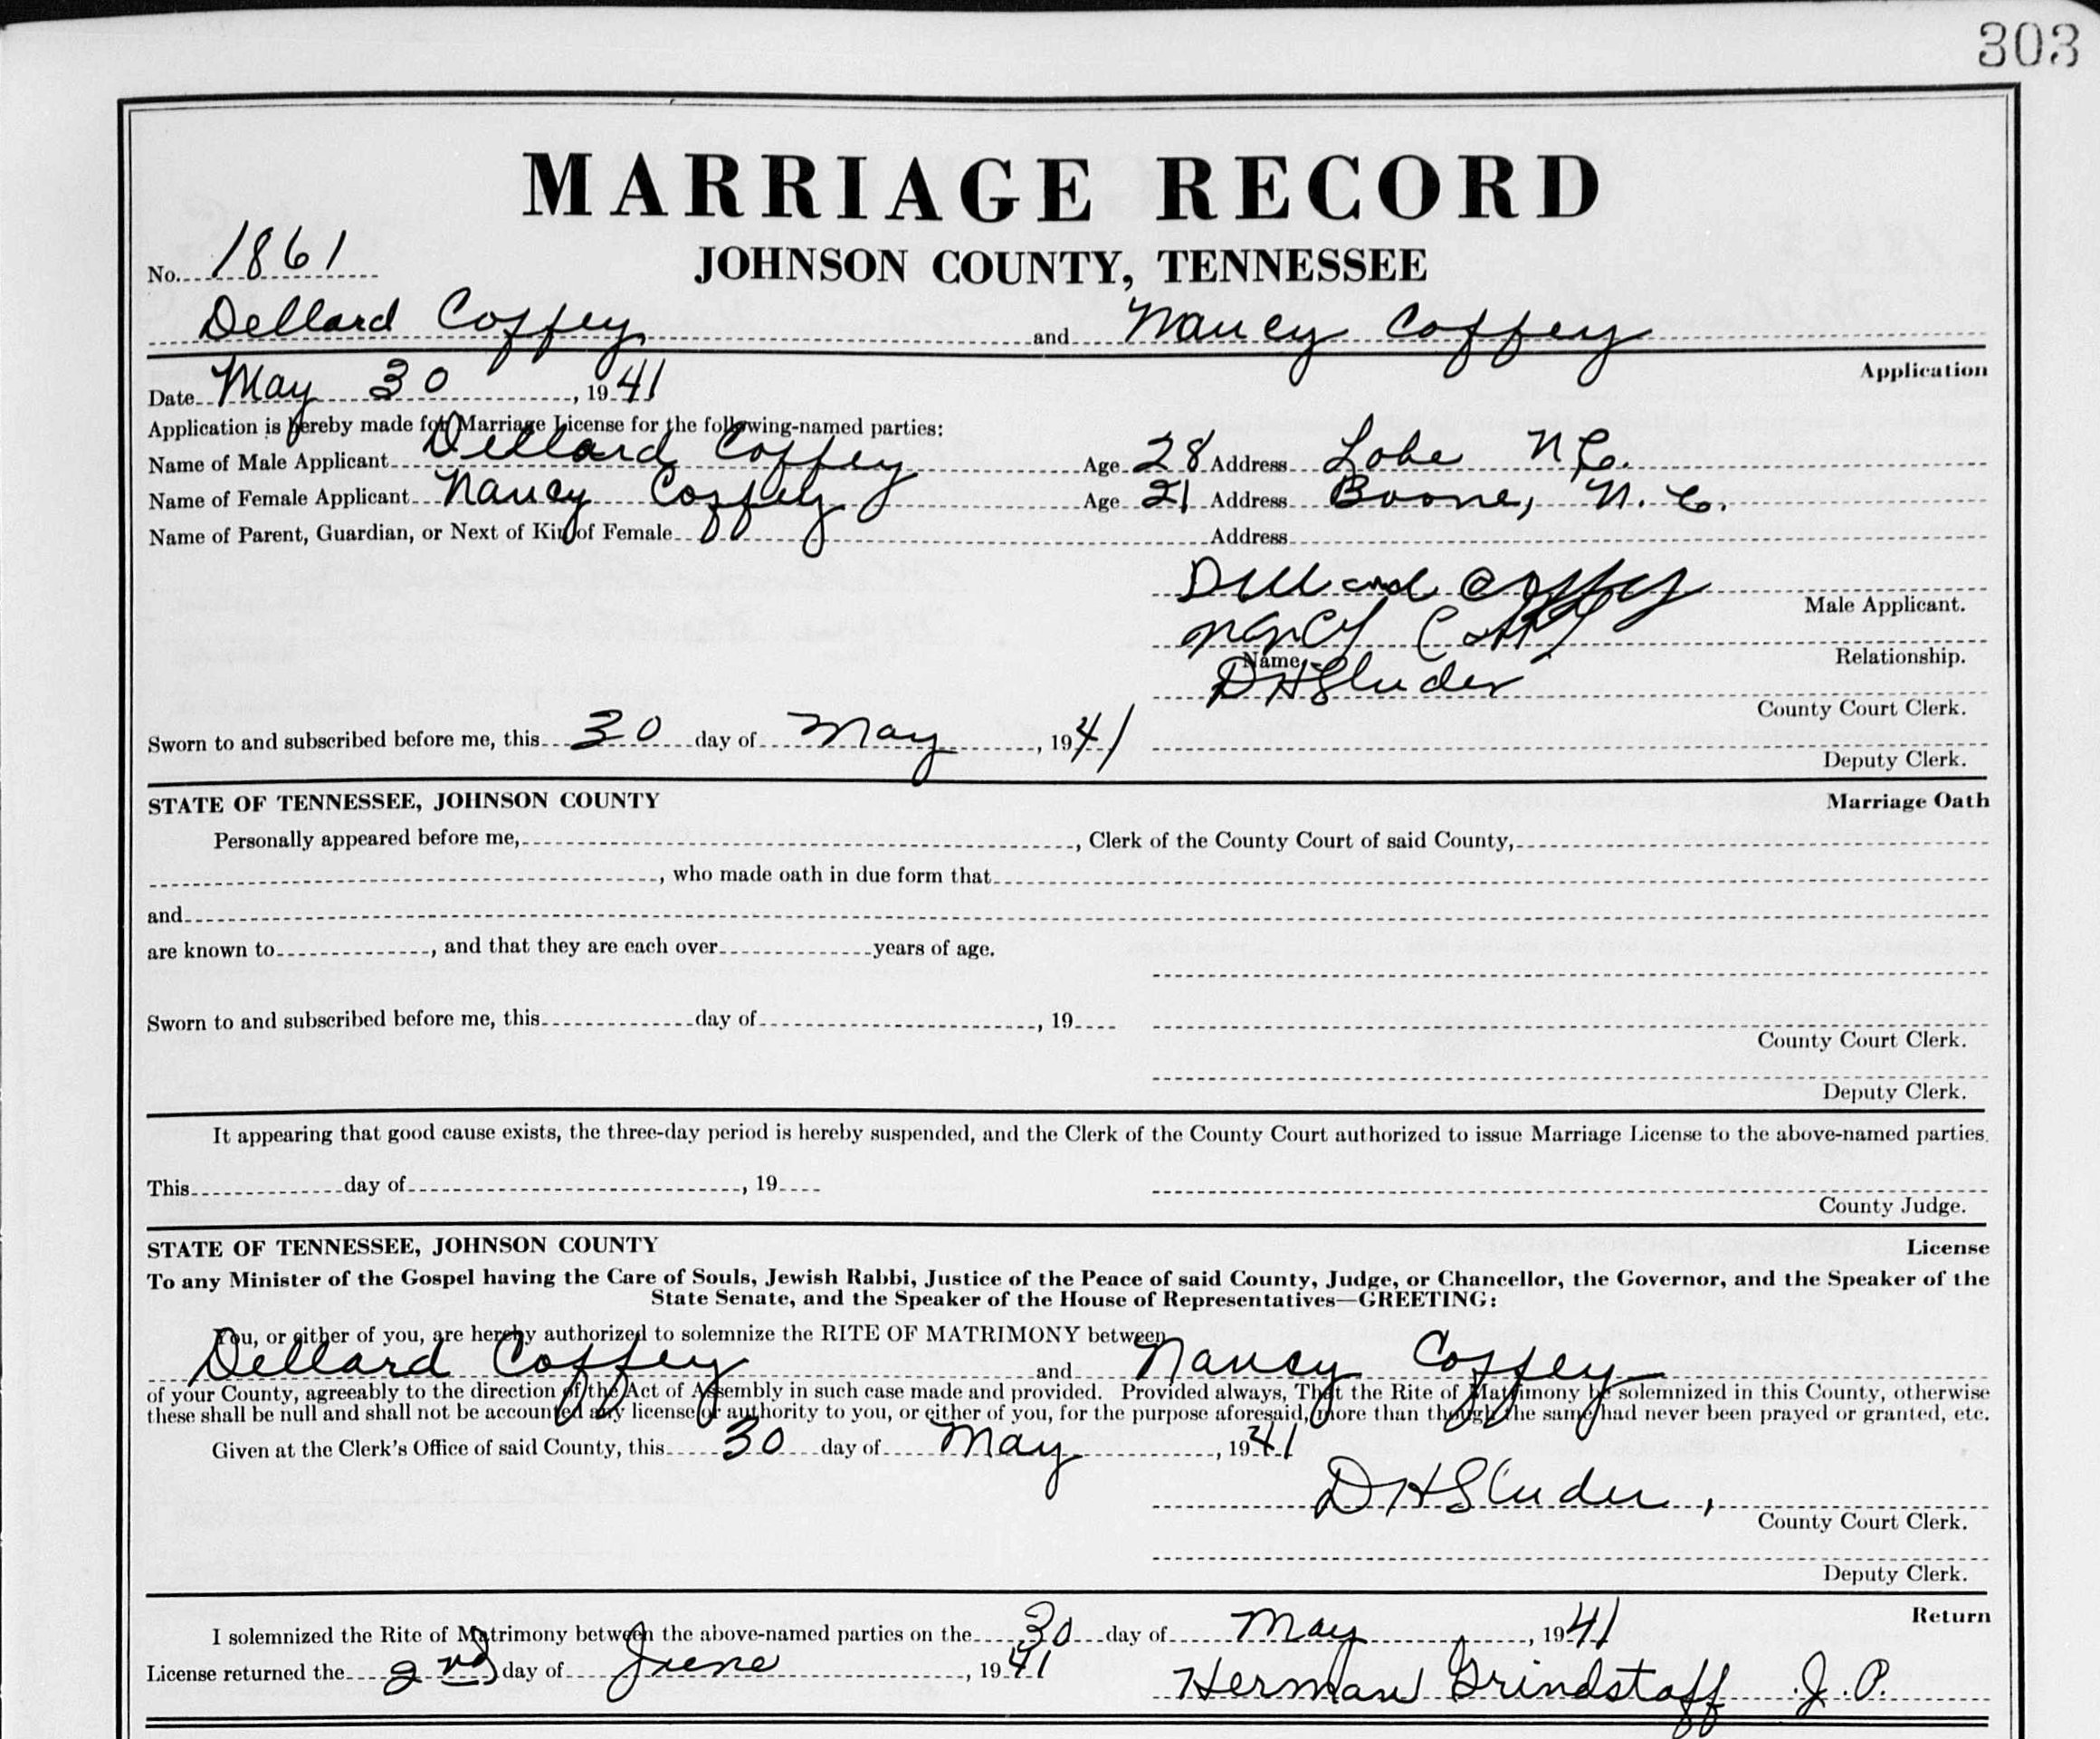 303
MARRIAGE RECORD
No. 1861
JOHNSON COUNTY, TENNESSEE
Dellard Coffey and Nancy Coffey
Application
Date May 30, 1941
Application is hereby made for Marriage License for the following-named parties:
Name of Male Applicant Dellard Coffey Age 28 Address Lobe N C.
Name of Female Applicant Nancy Coffey Age 21 Address Boone, N. C.
Name of Parent, Guardian, or Next of Kin of Female Address
Dillard Coffey
Male Applicant.
Nancy Coffey
Name. Relationship.
D H Sluder
County Court Clerk.
Sworn to and subscribed before me, this 30 day of May, 1941
Deputy Clerk.
STATE OF TENNESSEE, JOHNSON COUNTY Marriage Oath
Personally appeared before me, , Clerk of the County Court of said County,
, who made oath in due form that
and
are known to , and that they are each over years of age.
Sworn to and subscribed before me, this day of , 19
County Court Clerk.
Deputy Clerk.
It appearing that good cause exists, the three-day period is hereby suspended, and the Clerk of the County Court authorized to issue Marriage License to the above-named parties.
This day of , 19
County Judge.
STATE OF TENNESSEE, JOHNSON COUNTY License
To any Minister of the Gospel having the Care of Souls, Jewish Rabbi, Justice of the Peace of said County, Judge, or Chancellor, the Governor, and the Speaker of the
State Senate, and the Speaker of the House of Representatives—GREETING:
You, or either of you, are hereby authorized to solemnize the RITE OF MATRIMONY between
Dellard Coffey and Nancy Coffey
of your County, agreeably to the direction of the Act of Assembly in such case made and provided. Provided always, That the Rite of Matrimony be solemnized in this County, otherwise
these shall be null and shall not be accounted any license or authority to you, or either of you, for the purpose aforesaid, more than though the same had never been prayed or granted, etc.
Given at the Clerk's Office of said County, this 30 day of May, 1941
D H Sluder,
County Court Clerk.
Deputy Clerk.
Return
I solemnized the Rite of Matrimony between the above-named parties on the 30 day of May, 1941
License returned the 2nd day of June, 1941
Herman Grindstaff J. P.